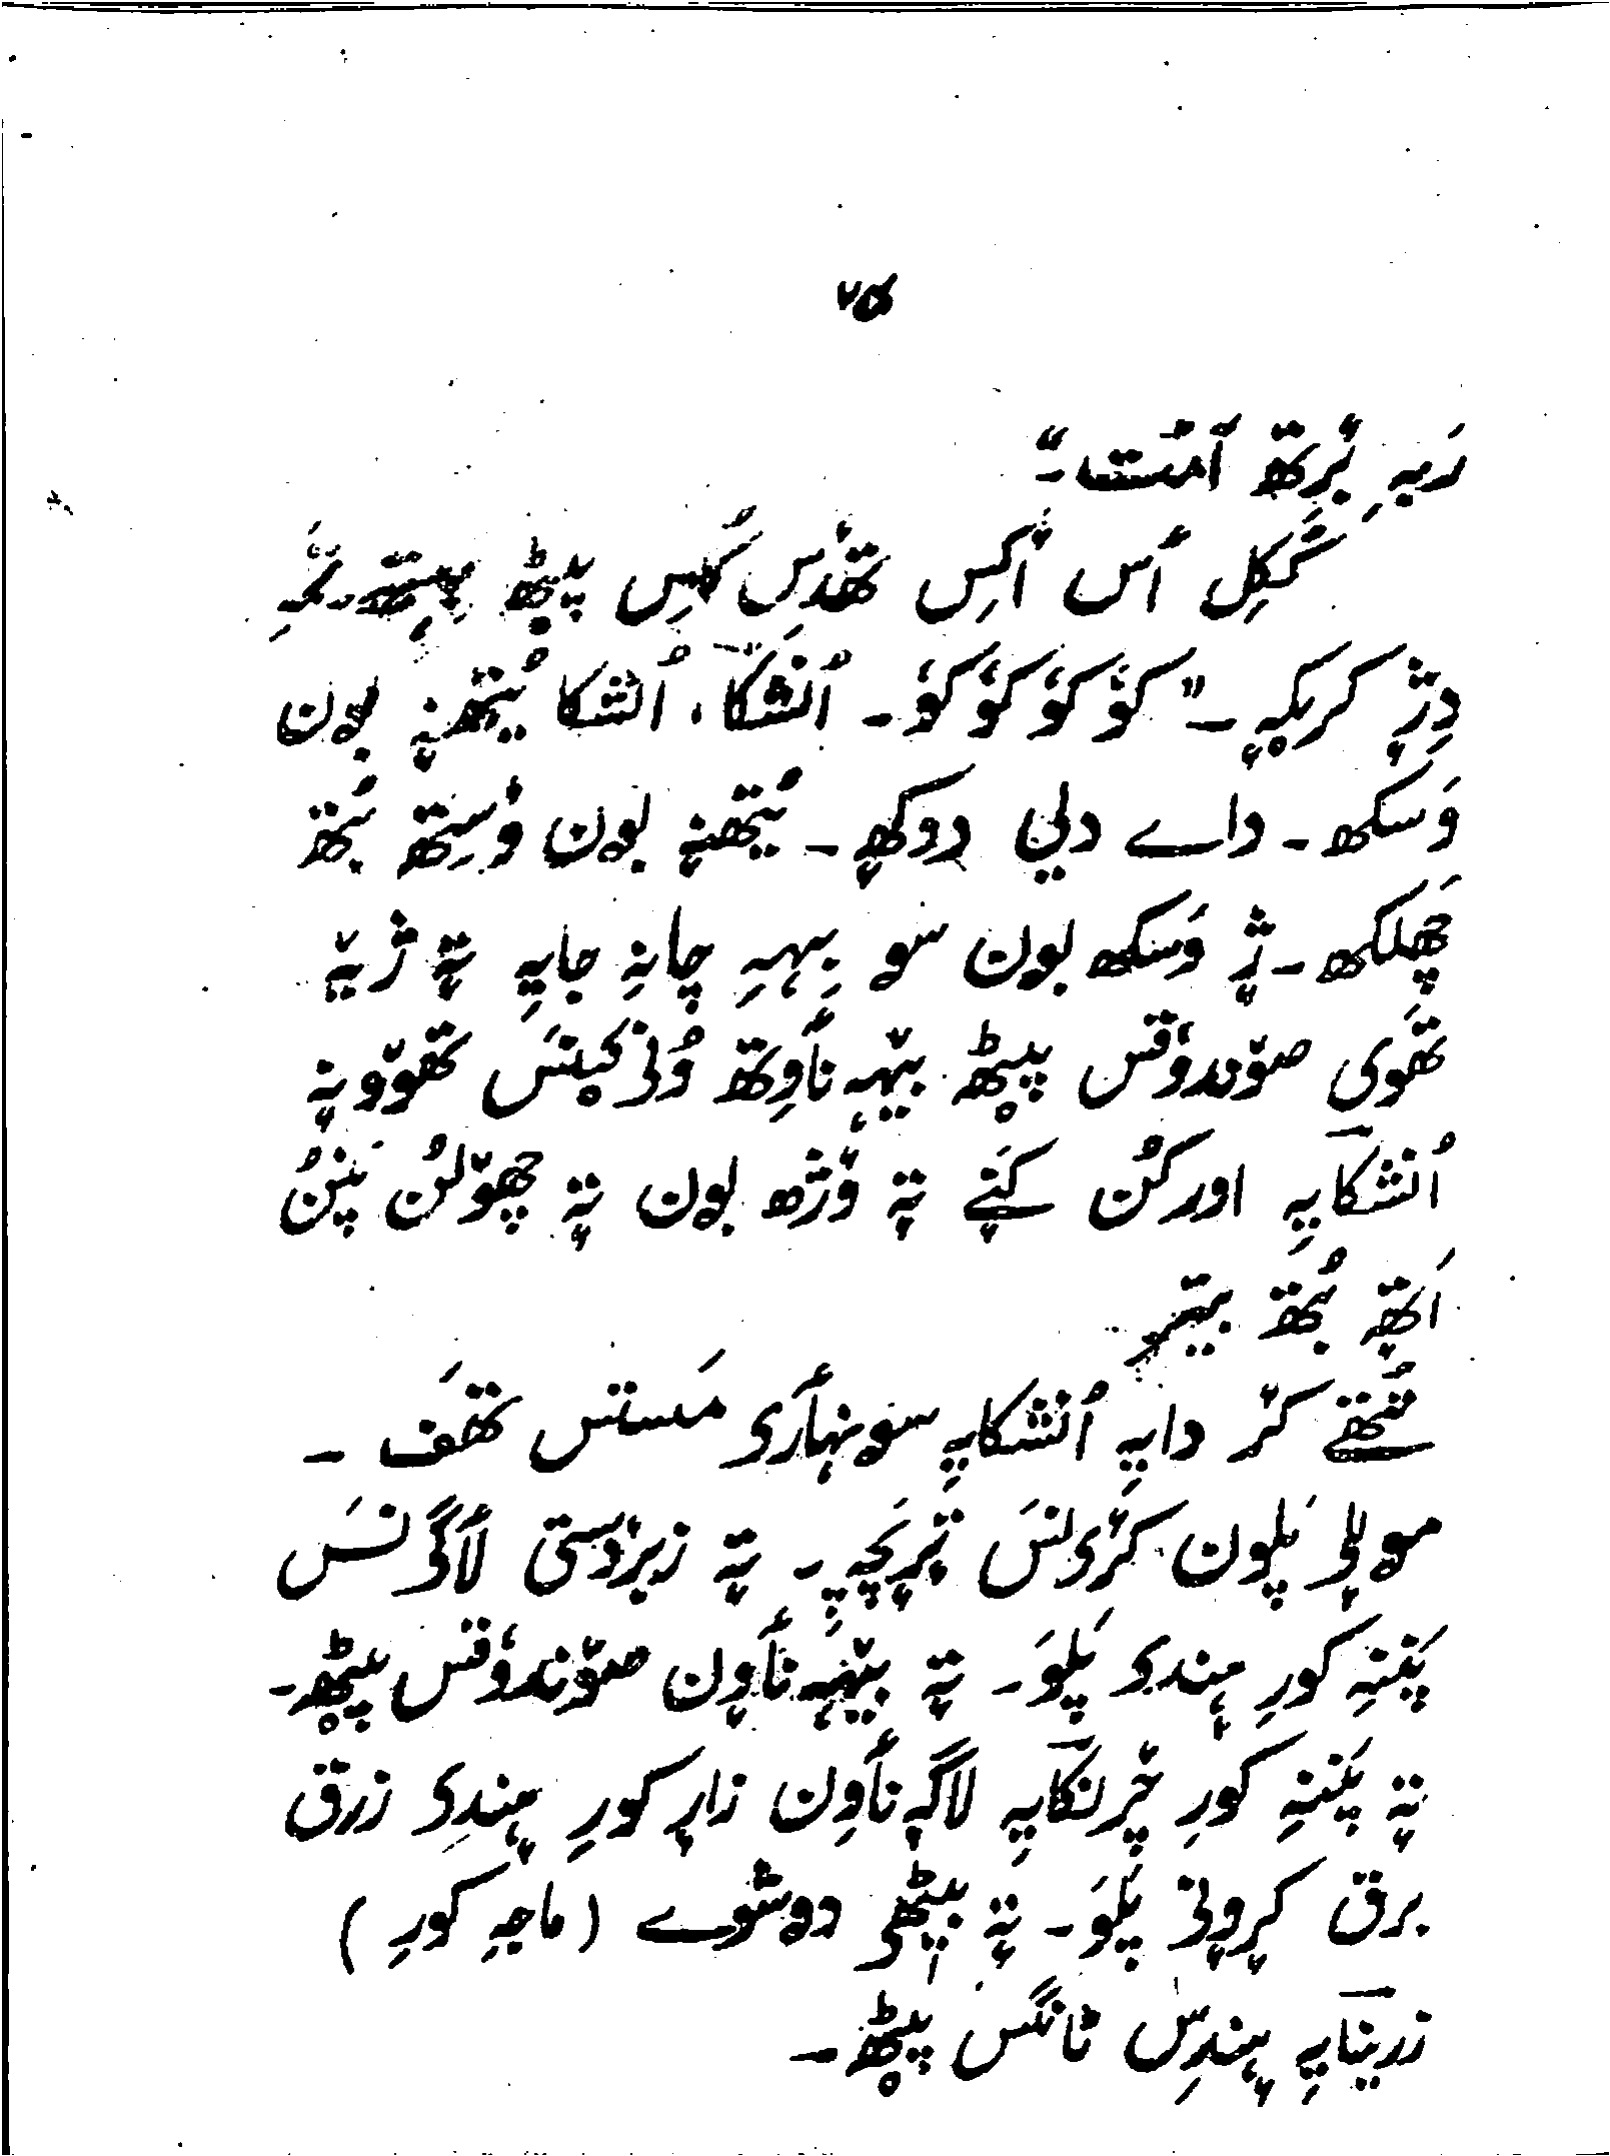 ۷۵
رَبہِ بٔرِتھ آمُت۔"
گگِل أس أکِس تھٔدِس کُلِس پؠٹھ بِہِتھ۔ تَمہِ
دِژٕ کریکہٕ۔ "کوٗ کوٗ کوٗ کوٗ۔ اُنشکا، اُنشکا یُتھنہٕ بون
وَسکھ۔ داے دلی دوکھہٕ۔ یُتھنہٕ بون ؤسِتھ بُتھ
چھَلکھ۔ ژٕ وَسکھ بون سو بِہہِ چانہِ جایہِ تہٕ ژیہٕ
تھَوی صوٚندوٗقس پؠٹھ بیٚہہٕ نٲوِتھ وُنۍ کینَس تھوٚوو نہٕ
اُنشکایہِ اورکُن کَنے تہٕ وٕژھ بون تہٕ چھوٚلُن پَنُن
اَتھہٕ بُتھ بیترِ
تُتھے کٔر دایہِ اُنشکایہِ سونہٲرۍ مَستس تھَف۔
مولۍ پَلون کٔرۍنَس تٕرٕچہِ تہٕ زبردٔستی لٲگۍنَس
پَننہِ کورِ ہٕندۍ پَلَو۔ تہٕ بیٚہہٕ نٲون صوٚندوٗقس پؠٹھ۔
تہٕ پَننہِ کورِ خٔرنکایہِ لاگہٕ نٲوِن زارٕ کورِ ہٕندۍ زرق
برق کرٕونۍ پَلَو۔ تہٕ بیٹھۍ دوشوے (ماجہِ کورِ)
زرینایہِ ہٕندِس ٹانگس پؠٹھ۔